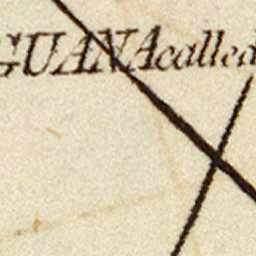 GUANA called